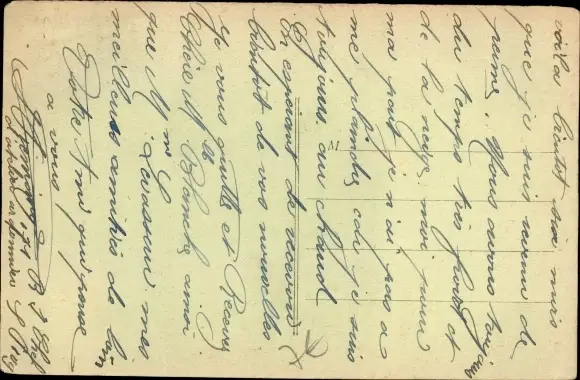 voilà bientôt six mois
que je suis venu de
perme. Nous avons toujours
du temps très froid et
de la neige. moi pour
ma part je n'ai pas a
me plaindre car je suis
toujours au chaud
En espérant de recevoir
bientôt de vos nouvelles
Je vous quitte et Recevez
Chère Mlle Blanche ainsi
que Mr Levasseur mes
meilleurs amitiés de loin
Votre Ami qui pense
a vous
M